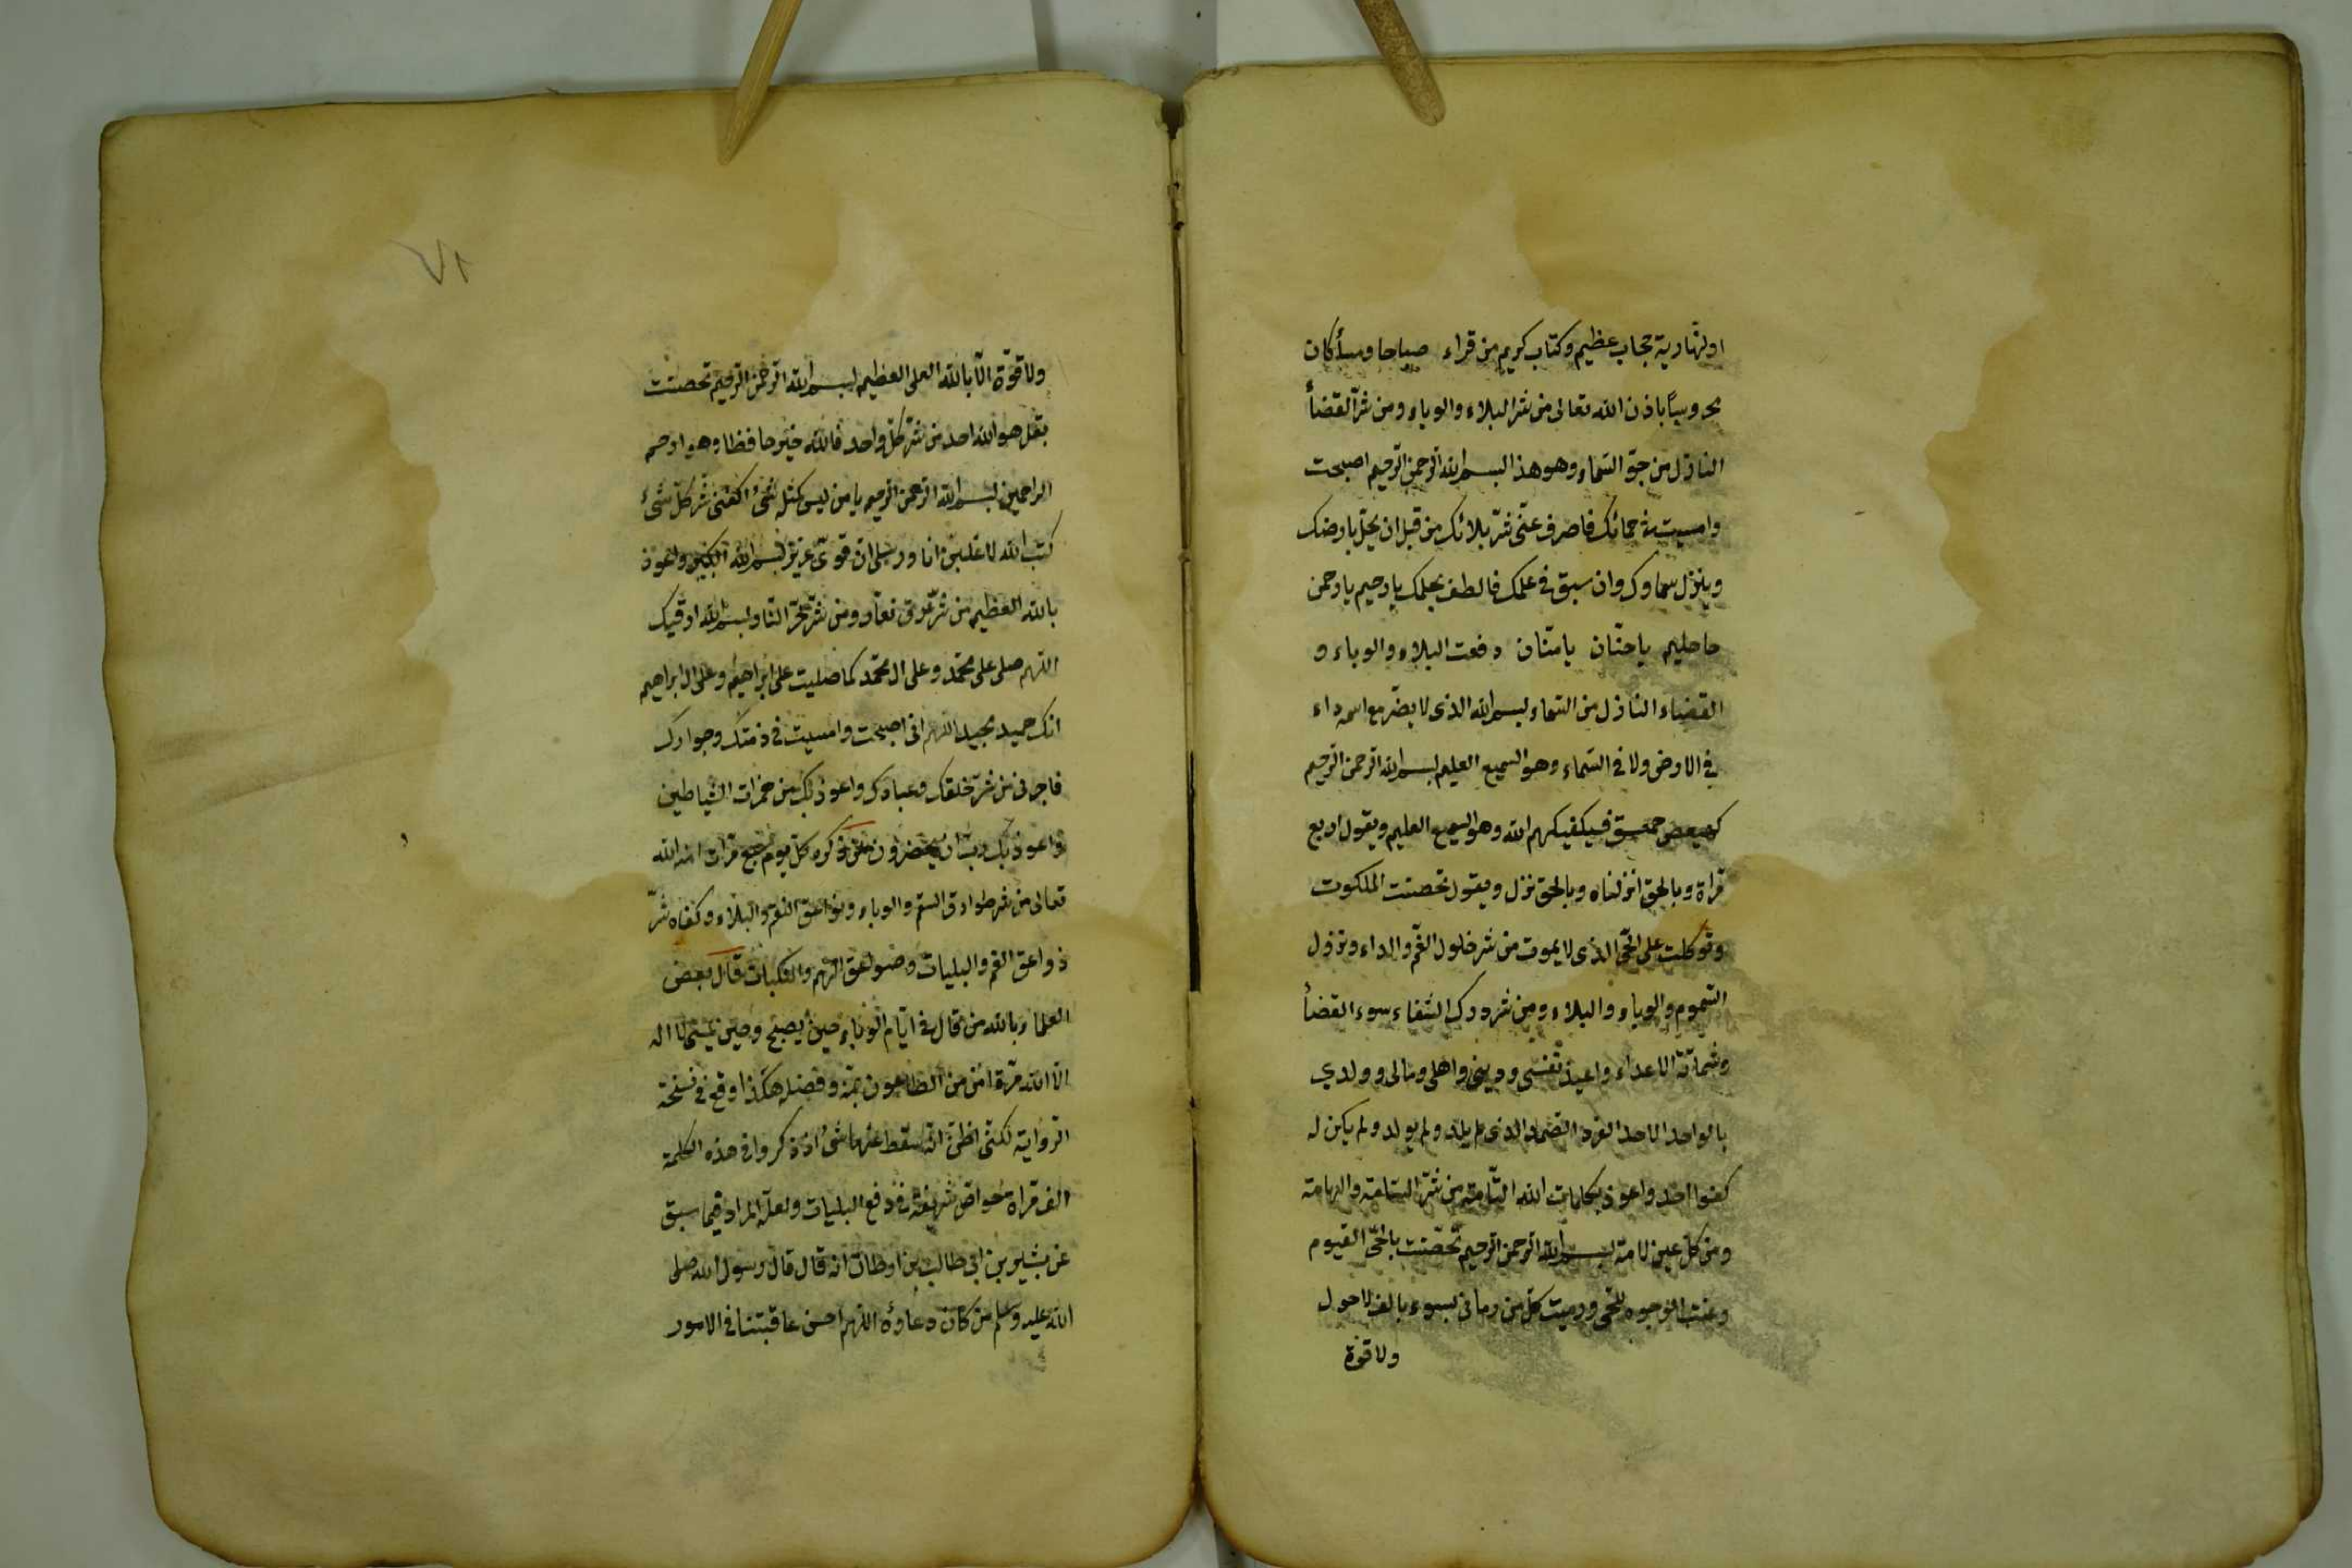 اولنهارية حجاب عظيم وكتاب كريم من قراء صباحا ومسأ كان
محروسًا باذن الله تعالى من شر البلاء والوباء ومن شرّ القضأ
النازل من جوّ السّماء وهو هذا بسم الله الرحمن الرّحيم اصبحت
وامسيت في حمائك فاصرف عنّى شرّ بلائك من قبل ان يحلّ بارضك
وينزل سماوك وان سبق فى علمك فالطف بحلمك يا رحيم يا رحمن
يا حليم يا حنّان يا منّان دفعت البلاء والوباء و
القضاء النازل من السّماء بسم الله الذى لا يضرّ مع اسمه داء
فى الارض ولا فى السّماء وهو السميع العليم بسم الله الرحمن الرّحيم
كهيعص حمعسق فسيكفيكهم الله وهو السميع العليم ويقول اربع
مّراة وبالحق انزلناه وبالحق نزل ويقول تحصنت الملكوت
وتوكلت على الحّى الذى لا يموت من شر حلول الغّم والداء ونزول
السّموم والوباء والبلاء ومن شر درك الشقاء سوء القضأ
وشماتة الاعداء واعيذ نفسى ودينى واهلى ومالى وولدي
بالواحد الاحد الفرد الصّمد الذى لم يلد ولم يولد ولم يكن له
كفوا احد واعوذ بكلمات الله التّامة من شرّ السّامة والهامة
ومن كلّ عين لامة بسم الله الرحمن الرحيم تحصّنت بالحّى القيوم
وعنت الوجوه للحّى ورميت كلّ من رمانى بسوء بالف لا حول
ولا قوة
٧١
ولا قوّة الّا بالله العلى العظيم بسم الله الرّحمن الرّحيم تحصّنت
بقل هو الله احد من شرّ كلّ واحد فالله خير حافظا وهو ارحم
الراحمين بسم الله الرّحمن الرّحيم يا من ليس كمثله شىء اكفنى شرّ كلّ شىء
كتب الله لاغلبن انا ورسلى ان قوىّ عزيز بسم الله الكبير واعوذ
بالله العظيم من شرّ عرق نعّار ومن شرّ حّر النّار بسم الله ارقيك
اللّهم صلى على محّمد وعلى ال محّمد كما صليت على ابراهيم وعلى ال ابراهيم
انك حميد مجيد اللّهم انى اصبحت وامسيت فى ذمتك وجوارك
فاجرنى من شرّ خلقك وعبادك واعوذ بك من همزات الشّياطين
واعوذ بك رب ان يحضرون من ذكره كلّ يوم سبع مّرات امنه الله
تعالى من شر طوارق السّم والوباء وبوائق النقم والبلاء وكفاه شرّ
الغم والبليات وصواعق الّهم والنكبات قال بعض
العلماء بالله من قال فى ايّام الوباء حين يصبح وحين يمسى لا اله
الّا الله مّرة امن من الطاعون بمنّه وفضله هكذا وقع فى نسخة
الرواية لكنّى اظنّ انّه سقط عنها شىء اذ ذكروا فى هذه الكلمة
الف مراة خواص شريفة فى دفع البليات ولعلّه المراد فيما سبق
عن بشير بن ابى طالب بن ارطات انه قال قال رسول الله صلى
الله عليه وسلم من كان دعاؤه اللّهم احسن عاقبتنا فى الامور